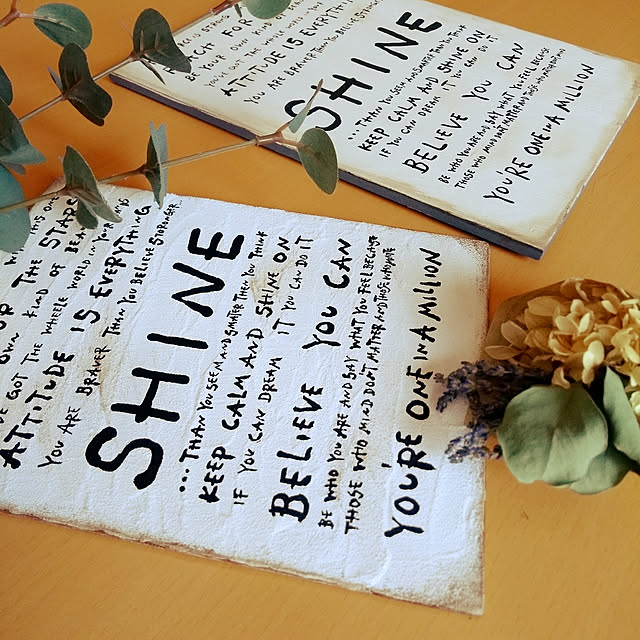 OWN KIND OF
GOT THE WHOLE WORLD IN YOUR
ATTITUDE IS EVERYTHING
YOU ARE BRAVER THAN YOU BELIEVE STRONGER...
SHINE
...THAN YOU SEEM AND SMARTER THEN YOU THINK
KEEP CALM AND SHINE ON
IF YOU CAN DREAM IT YOU CAN DO IT
BELIEVE YOU CAN
BE WHO YOU ARE AND SAY WHAT YOU FEEL BECAUSE
THOSE WHO MIND DON'T MATTER AND THOSE WHO
YOU'RE ONE IN A MILLION
BE YOUR OWN KIND OF
ATTITUDE IS EVERYTHING
YOU ARE BRAVER THAN YOU BELIEVE
SHINE
...THAN YOU SEEM AND SMARTER THAN YOU THINK
KEEP CALM AND SHINE ON
IF YOU CAN DREAM IT YOU CAN DO IT
BELIEVE YOU CAN
BE WHO YOU ARE AND SAY WHAT YOU FEEL BECAUSE
THOSE WHO MIND DON'T MATTER AND THOSE WHO
YOU'RE ONE IN A MILLION